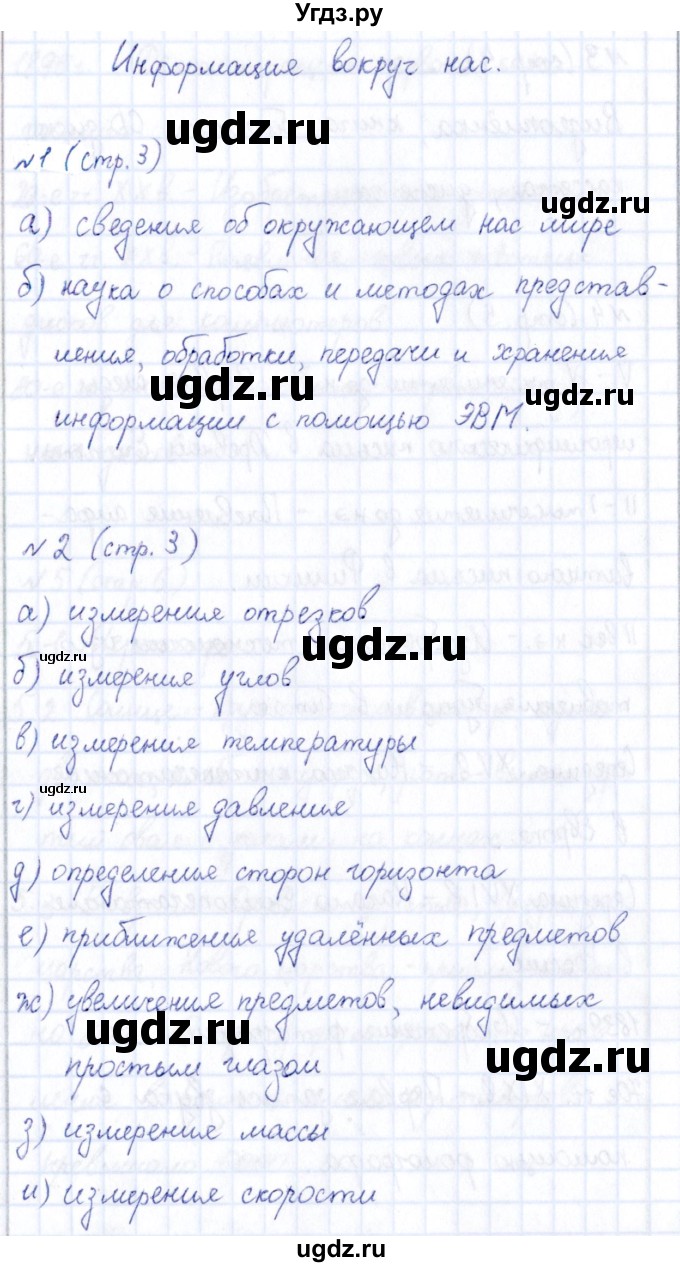 Угдз.ру
Информация вокруг нас.
ugdz.ru
№1 (стр. 3)
ugdz.ru
а) сведения об окружающем нас мире
ugdz.ru
б) наука о способах и методах представ-
ления, обработки, передачи и хранения
ugdz.ru
ugdz.ru
информации с помощью ЭВМ.
№2 (стр. 3)
а) измерения отрезков
ugdz.ru
ugdz.ru
б) измерения углов
в) измерения температуры
ugdz.ru
г) измерения давления
д) определения сторон горизонта
е) приближенье удалённых предметов
ж) увеличения предметов, невидимых
ugdz.ru
ugdz.ru
простым глазом
з) измерения массы
и) измерения скорости
ugdz.ru